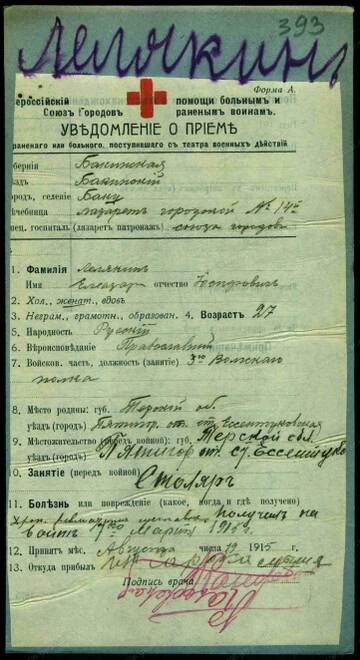 393
Лелякинъ
Форма А.
ероссійскій помощи больнымъ и
Союзъ Городовъ раненымъ воинамъ.
УВѢДОМЛЕНІЕ О ПРІЕМѢ
раненаго или больного, поступившаго съ театра военныхъ дѣйствій
бернія Бакинская
ѣздъ Бакинскій
ородъ, селеніе Баку
ечебница Лазаретъ городской № 14й
ец. госпиталь (лазаретъ патронажъ) союза городовъ
1. Фамилія Лелякинъ
Имя Елеазаръ отчество
2. Хол., женат., вдовъ.
3. Неграм., грамотн., образован. 4. Возрастъ 27
5. Народность Русскій
6. Вѣроисповѣданіе Православный
7. Войсков. часть, должность (занятіе) 3го Волжскаго
полка
8. Мѣсто родины: губ. Терской об.
уѣздъ (городъ) Пятигор. от. ст. Ессентукская
9. Мѣстожительство (передъ войной): губ. Терской обл.
уѣздъ (городъ) Пятигор от. ст. Ессентук
10. Занятіе (передъ войной)
Столяръ
11. Болѣзнь или поврежденіе (какое, когда и гдѣ получено)
получилъ на
войнѣ 7го Марта 1915 г.
12. Принятъ мѣс. Августа числа 19 1915 г.
13. Откуда прибылъ
Подпись врача